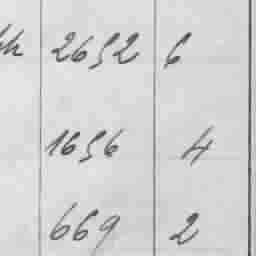 2652 6
1656 4
669 2